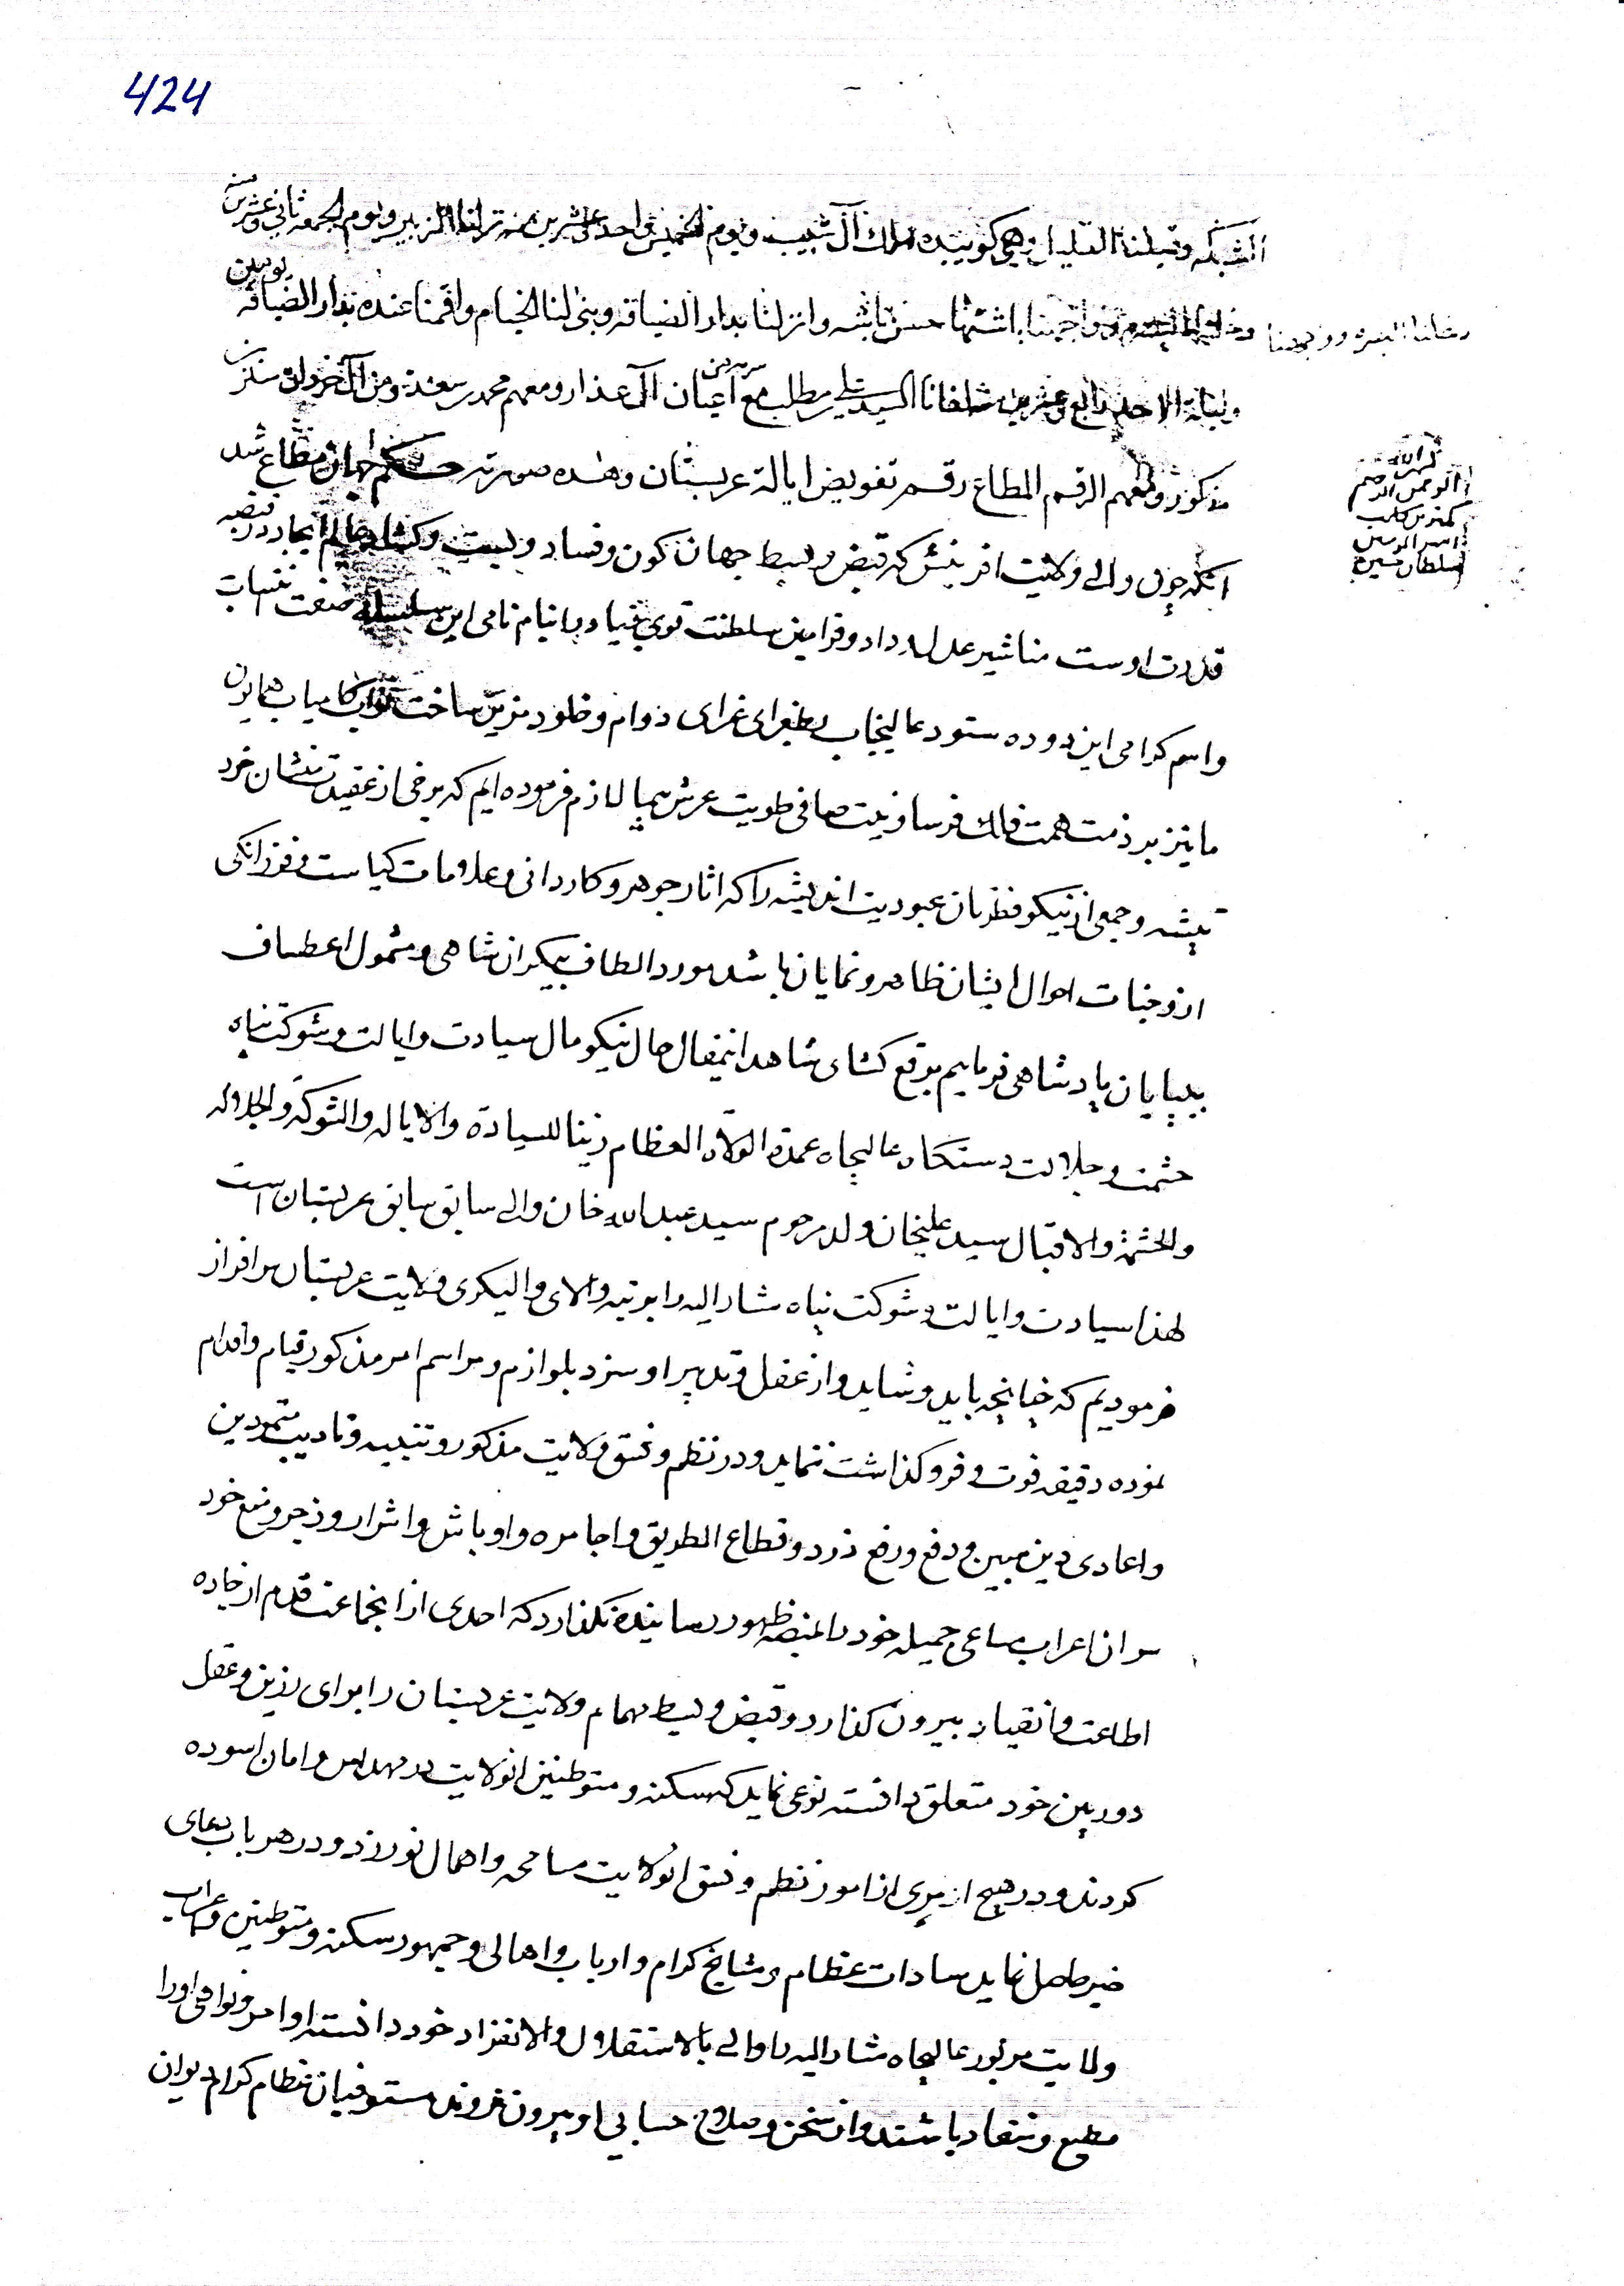 424
الشبكه وقيلنا القليل في كويبده املاك آل شبيب ويوم الخميس احد عشرين منه نزلنا الزبير ويوم الجمعه ثاني وعشرين منه
دخلنا البصرة ووجهنا باشتها حسن باشه وانزلنا بدار الضيافه وبنى لنا الخيام واقمنا عنده بدار الضيافه يومين
وليلة الاحد رابع وعشرين منه لفانا السيد علي بن مطلب مع اعيان آل عذار ومعهم محمد بن سعنة ومن آل خردل
مذكور ومعهم الرقم المطاع رقم تفويض ايالة عربستان وهذه صورته حكم جهان مطاع شد
بسم الله الرحمن الرحيم
كمترين كلب امير المومنين سلطان حسين
انكه چون والى ولايت افرينش كه قبض وبسط جهان كون وفساد وبست وكشاد عالم ايجاد در قبضه
قدرت اوست مناشير عدل وداد وفرامين سلطنت قوي بنياد را بنام نامى اين سلسله صفت نسبات
واسم كرامى اين دوده ستوده عاليجناب بطغراى غراى دوام وخلود مزين ساخت نواب كامياب همايون
ما نيز بر ذمت همت فلك فرسا ونيت صافى طويت عرش سيما لازم فرموده ايم كه برخى از عقيدتمنشان خرد
پيشه وجمعى از نيكو فطرتان عبوديت انديشه را كه اثار جوهر وكاردانى وعلامات كياست وفرزانكى
از وجنات احوال ايشان ظاهر ونمايان باشد مورد الطاف بيكران شاهى ومشمول اعطاف
بيپايان پادشاهى فرمايم برقع كشاى شاهد اينمقال حال نيكو مال سيادت وايالت وشوكت پناه
حشمت وجلالت دستكاه عاليجاه عمدة الولاة العظام زينا للسيادة والاياله والشوكة والجلاله
والحشمة والاقبال سيد عليخان ولد مرحوم سيد عبد الله خان والى سابق سابق عربستان است
لهذا سيادت وايالت وشوكت پناه مشار اليه را برتبه والاى واليكرى ولايت عربستان سرافراز
فرموديم كه چنانچه بايد وشايد واز عقل وتدبير او سزد بلوازم ومراسم امر مذكور قيام واقدام
نموده دقيقه فوت وفرو كذاشت ننمايد ودر نظم ونسق ولايت مذكور وتنبيه وتاديب متمردين
واعادى دين مبين ودفع ورفع دزد وقطاع الطريق واجامره واوباش واشرار وزجر ومنع خود
سران اعراب مساعى جميله خود را بمنصه ظهور رسانيده نكذارد كه احدى از انجماعت قدم از جاده
اطاعت وانقياد بيرون كذارد وقبض وبسط مهمام ولايت عربستان را براى رزين وعقل
دوربين خود متعلق دانسته نوعى نمايد كه سكنه ومتوطنين انولايت در مهد امن وامان اسوده
كردند ودر هيچ امرى از امور نظم ونسق انولايت مسامحه واهمال نورزد ودر هر باب دعاى
خير حاصل نمايد سادات عظام ومشايخ كرام وارباب واهالى وجمهور سكنه ومتوطنين واعراب
ولايت مزبور عاليجاه مشار اليه را والى بالاستقلال والانفراد خود دانسته اوامر ونواهى اورا
مطيع ومنقاد باشند واز سخن وصلاح حسابي او بيرون نروند مستوفيان عظام كرام ديوان